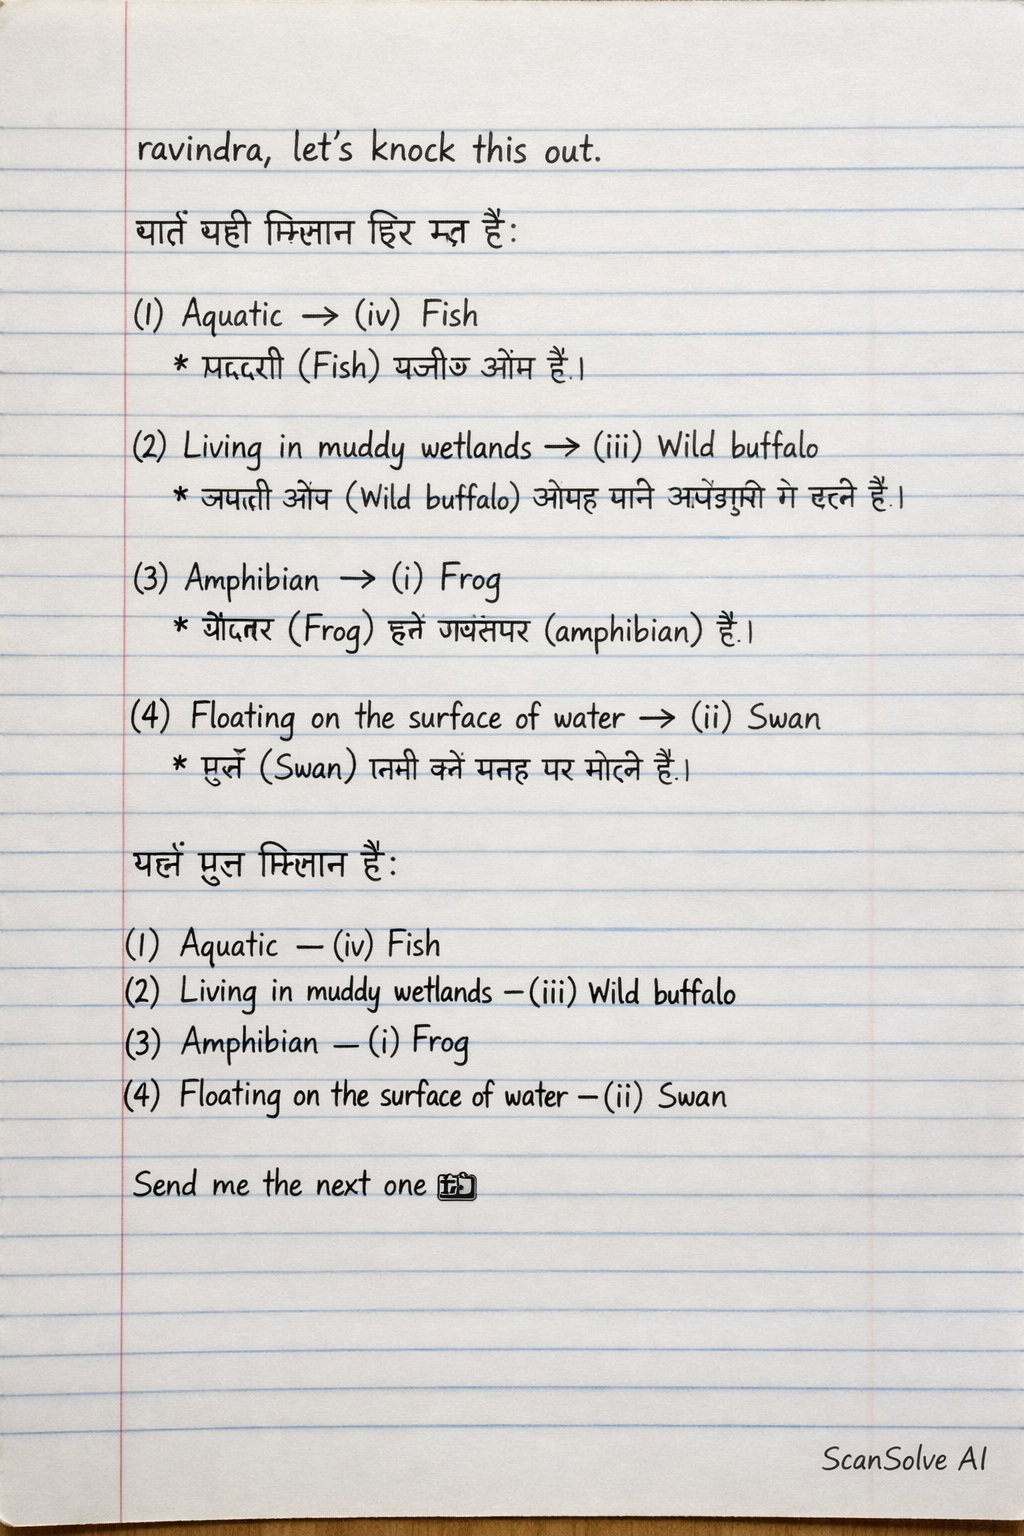 ravindra, let's knock this out.
यही है:
(1) Aquatic → (iv) Fish
* (Fish) है.।
(2) Living in muddy wetlands → (iii) Wild buffalo
* (Wild buffalo) है.।
(3) Amphibian → (i) Frog
* (Frog) (amphibian) है.।
(4) Floating on the surface of water → (ii) Swan
* (Swan) पर है.।
है:
(1) Aquatic – (iv) Fish
(2) Living in muddy wetlands – (iii) Wild buffalo
(3) Amphibian – (i) Frog
(4) Floating on the surface of water – (ii) Swan
Send me the next one
ScanSolve AI